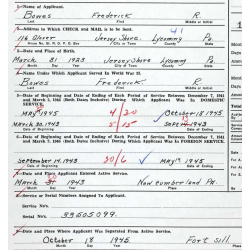 1.—Name of Applicant.
Bowes Frederick R
Last First Middle or Initial
2.—Address to Which CHECK and MAIL is to be Sent. 41
116 Oliver Jersey Shore Lycoming Pa
House No. St. R. D. P. O. Box City or Town County State
3.—Date and Place of Birth.
March 31 1923 Jersey Shore Lycoming Pa
Month Day Year City or Town County State
4.—Name Under Which Applicant Served In World War II.
Bowes Frederick R
Last First Middle or Initial
5.—Date of Beginning and Date of Ending of Each Period of Service Between December 7, 1941
and March 2, 1946 (Both Dates Inclusive) During Which Applicant Was In DOMESTIC
SERVICE.
May 1945 4/20 October 18 1945
March 30, 1943 5/15 Sept 1943
6.—Date of Beginning and Date of Ending of Each Period of Service Between December 7, 1941
and March 2, 1946 (Both Dates Inclusive) During Which Applicant Was In FOREIGN SERVICE.
September 14, 1943 20/6 May 1945
7.—Date and Place Applicant Entered Active Service.
March 1943 New Cumberland Pa.
Month Day Year Place
8.—Service or Serial Numbers Assigned to Applicant.
Service No.
Serial No. 33505099
9.—Date and Place Where Applicant Was Separated From Active Service.
October 18 1945 Fort Sill